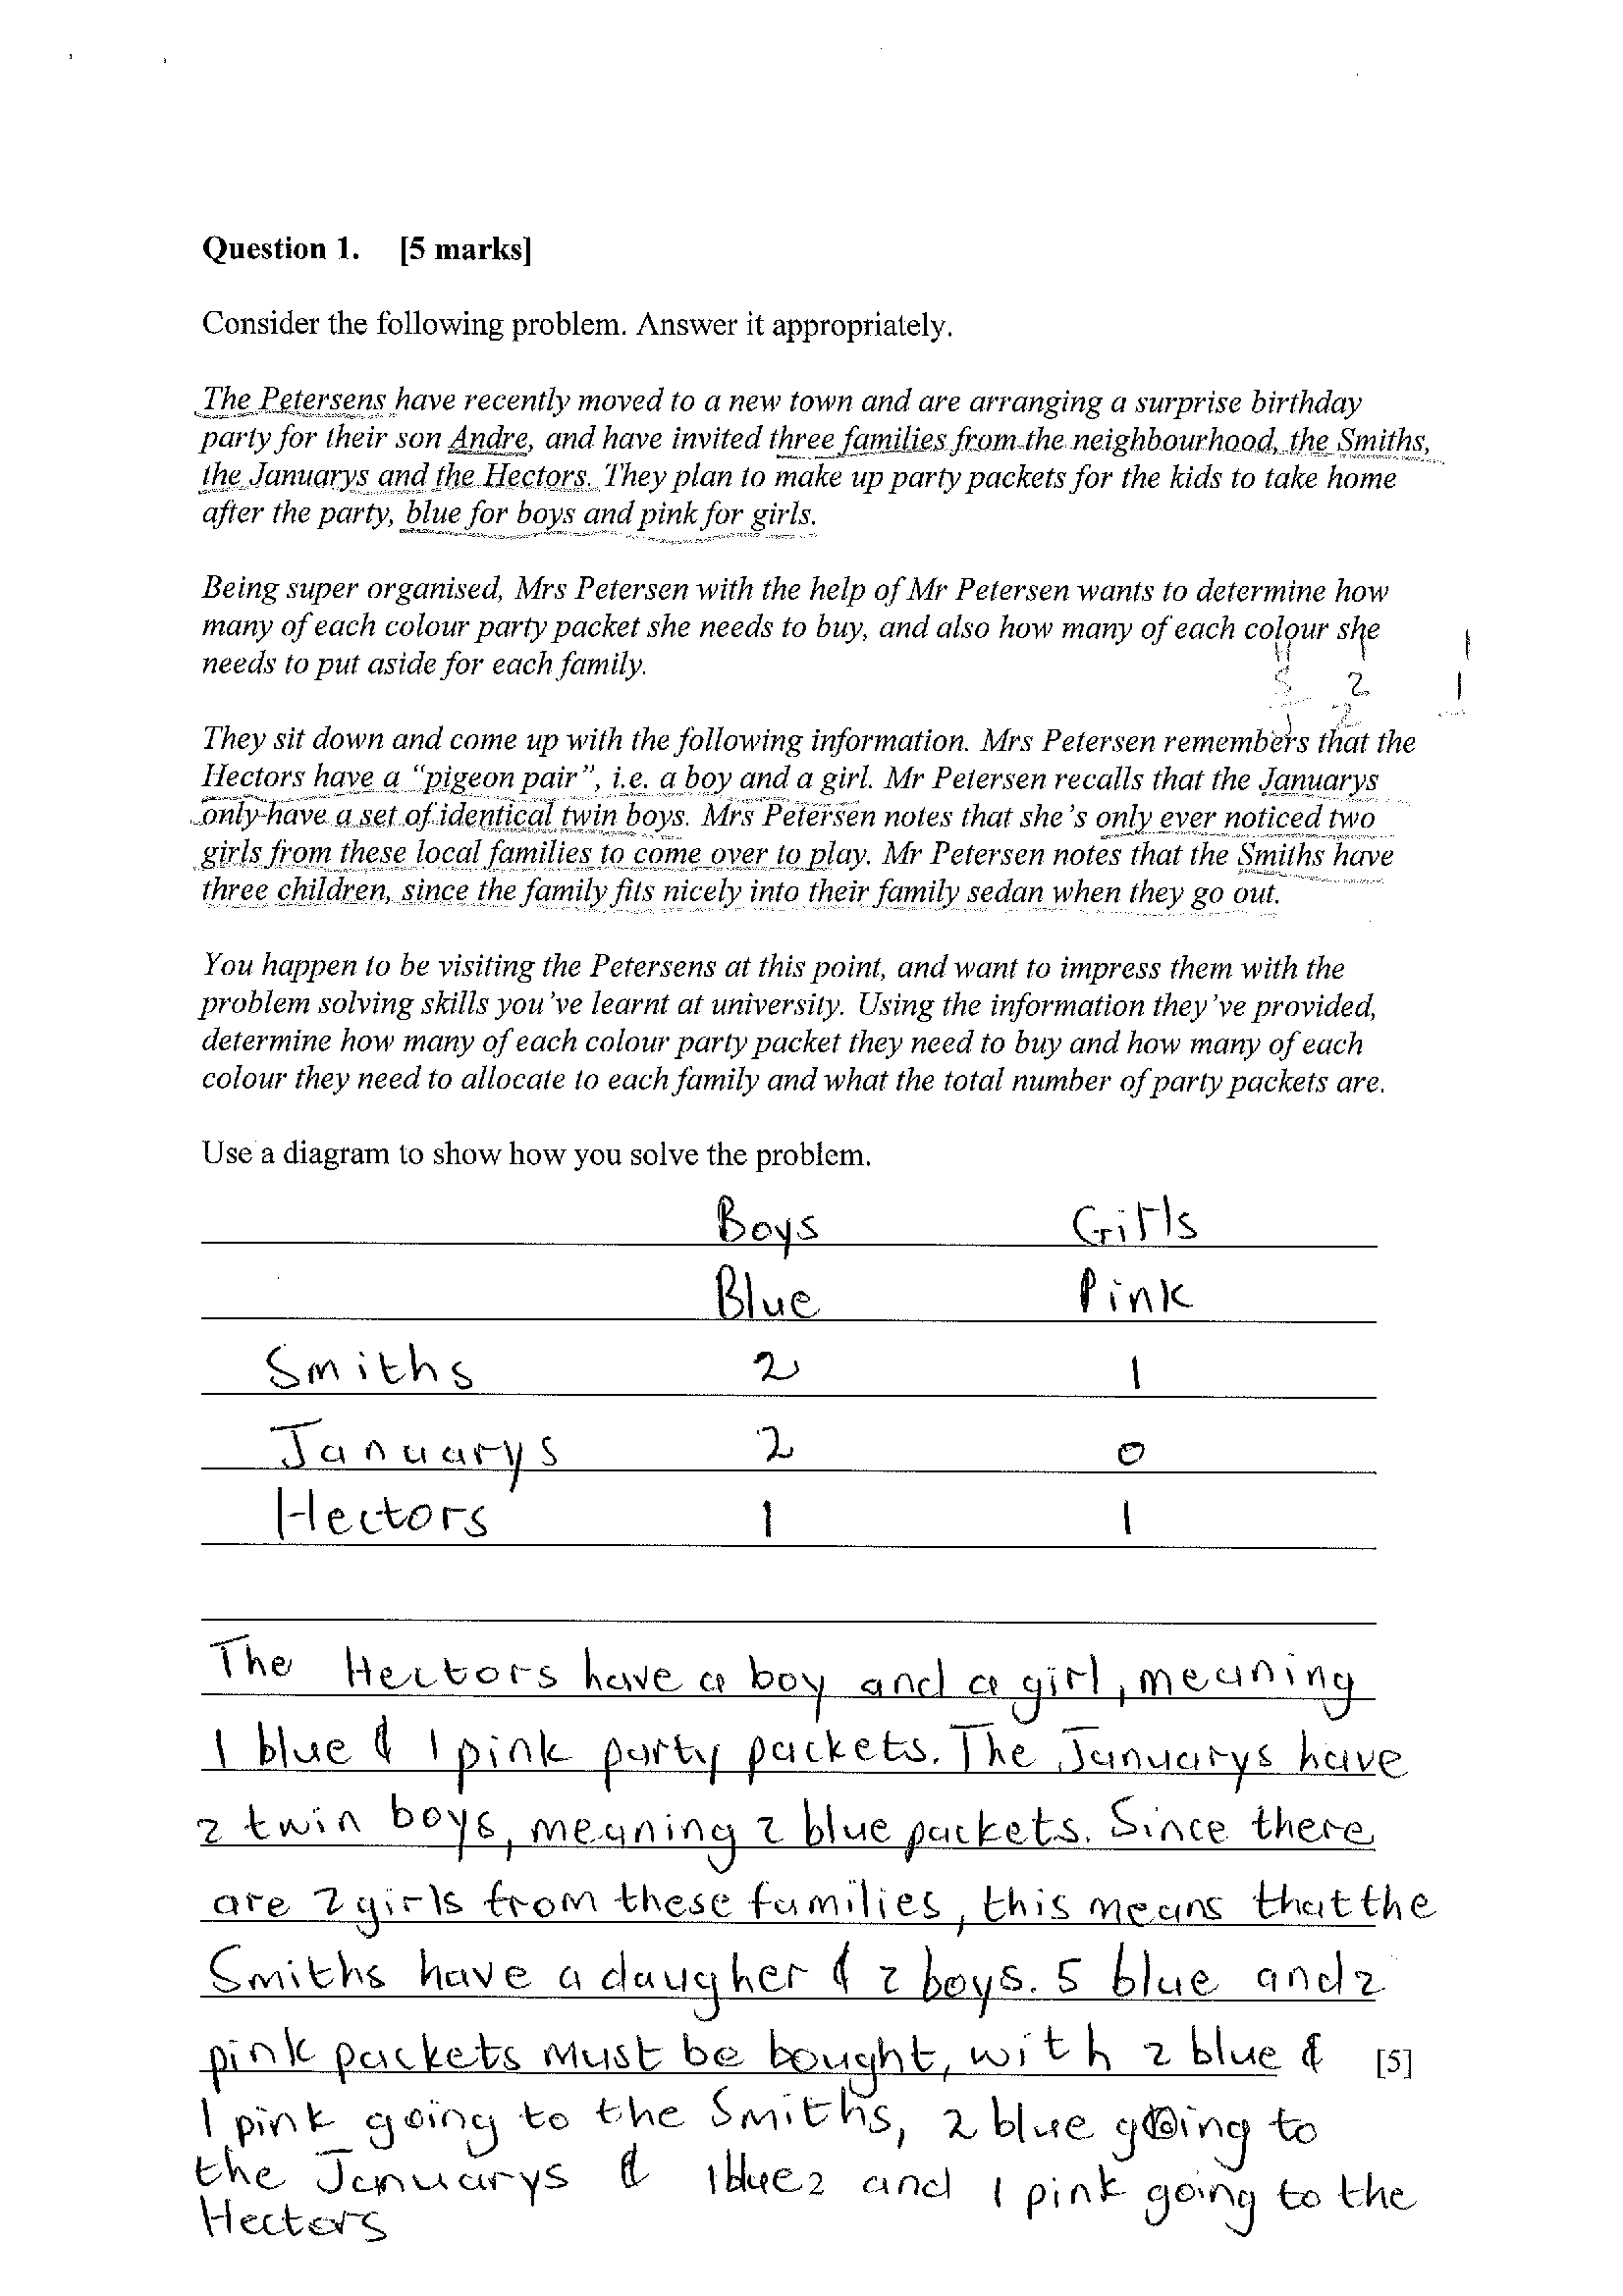 Question 1. [5 marks]
Consider the following problem. Answer it appropriately.
The Petersens have recently moved to a new town and are arranging a surprise birthday
party for their son Andre, and have invited three families from the neighbourhood, the Smiths,
the Januarys and the Hectors. They plan to make up party packets for the kids to take home
after the party, blue for boys and pink for girls.
Being super organised, Mrs Petersen with the help of Mr Petersen wants to determine how
many of each colour party packet she needs to buy, and also how many of each colour she
needs to put aside for each family.
1
2 1
2
They sit down and come up with the following information. Mrs Petersen remembers that the
Hectors have a "pigeon pair", i.e. a boy and a girl. Mr Petersen recalls that the Januarys
only have a set of identical twin boys. Mrs Petersen notes that she's only ever noticed two
girls from these local families to come over to play. Mr Petersen notes that the Smiths have
three children, since the family fits nicely into their family sedan when they go out.
You happen to be visiting the Petersens at this point, and want to impress them with the
problem solving skills you've learnt at university. Using the information they've provided,
determine how many of each colour party packet they need to buy and how many of each
colour they need to allocate to each family and what the total number of party packets are.
Use a diagram to show how you solve the problem.
Boys Girls
Blue Pink
Smiths 2 1
Januarys 2 0
Hectors 1 1
The Hectors have a boy and a girl, meaning
1 blue & 1 pink party packets. The Januarys have
2 twin boys, meaning 2 blue packets. Since there
are 2 girls from these families, this means that the
Smiths have a daugher & 2 boys. 5 blue and 2
pink packets must be bought, with 2 blue & [5]
1 pink going to the Smiths, 2 blue going to
the Januarys & 1 blue and 1 pink going to the
Hectors